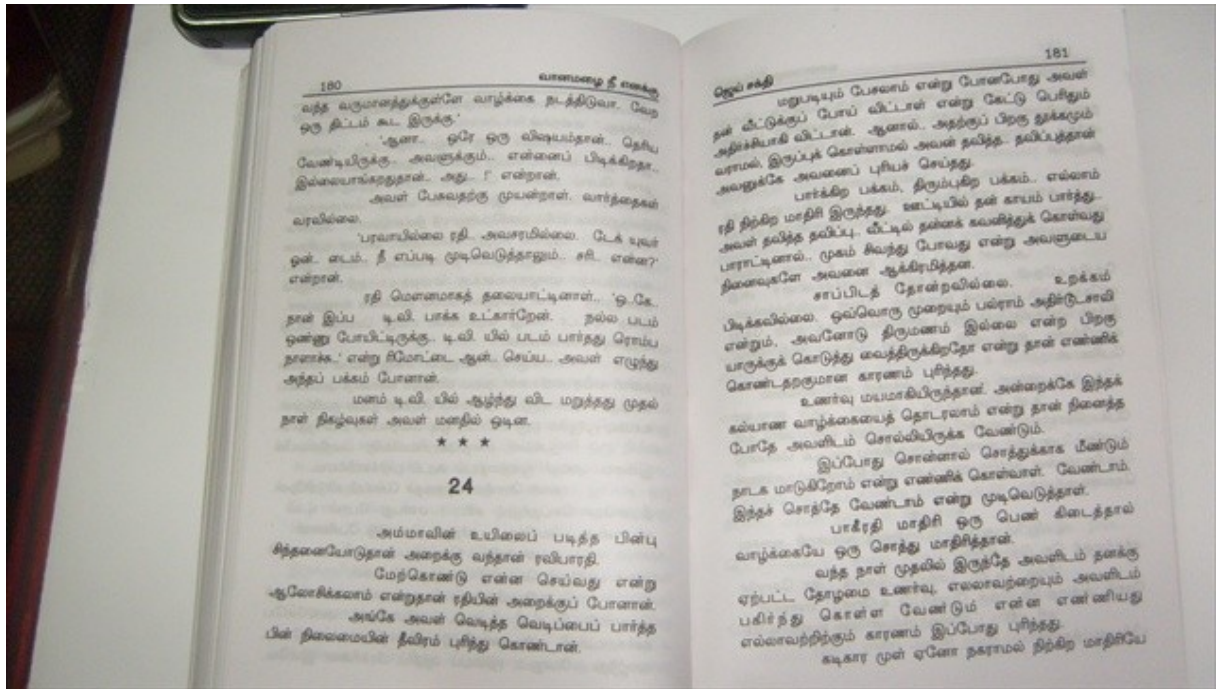 180 வானமழை நீ எனக்கு
வந்த வருமானத்துக்குள்ளே வாழ்க்கை நடத்திடுவா.. வேற
ஒரு திட்டம் கூட இருக்கு.'
'ஆனா.. ஒரே ஒரு விஷயம்தான்.. தெரிய
வேண்டியிருக்கு.. அவளுக்கும்.. என்னைப் பிடிக்கிறதா..
இல்லையாங்கறதுதான்.. அது.. !' என்றான்.
அவள் பேசுவதற்கு முயன்றாள். வார்த்தைகள்
வரவில்லை.
'பரவாயில்லை ரதி.. அவசரமில்லை. டேக் யுவர்
ஓன்.. டைம்.. நீ எப்படி முடிவெடுத்தாலும்.. சரி.. என்ன?'
என்றான்.
ரதி மௌனமாகத் தலையாட்டினாள்.. 'ஓ..கே..
நான் இப்ப டி.வி. பாக்க உட்கார்றேன். நல்ல படம்
ஒண்ணு போயிட்டிருக்கு.. டி.வி. யில் படம் பார்த்து ரொம்ப
நாளாச்சு..' என்று ரிமோட்டை ஆன்.. செய்ய.. அவள் எழுந்து
அந்தப் பக்கம் போனாள்.
மனம் டி.வி. யில் ஆழ்ந்து விட மறுத்தது முதல்
நாள் நிகழ்வுகள் அவள் மனதில் ஓடின.
★ ★ ★
24
அம்மாவின் உயிலைப் படித்த பின்பு
சிந்தனையோடுதான் அறைக்கு வந்தான் ரவிபாரதி.
மேற்கொண்டு என்ன செய்வது என்று
ஆலோசிக்கலாம் என்றுதான் ரதியின் அறைக்குப் போனான்.
அங்கே அவள் வெடித்த வெடிப்பைப் பார்த்த
பின் நிலைமையின் தீவிரம் புரிந்து கொண்டான்.
ஜெய் சக்தி 181
மறுபடியும் பேசலாம் என்று போனபோது அவள்
தன் வீட்டுக்குப் போய் விட்டாள் என்று கேட்டு பெரிதும்
அதிர்ச்சியாகி விட்டான். ஆனால்.. அதற்குப் பிறகு தூக்கமும்
வராமல், இருப்புக் கொள்ளாமல் அவன் தவித்த.. தவிப்புத்தான்
அவனுக்கே அவனைப் புரியச் செய்தது.
பார்க்கிற பக்கம், திரும்புகிற பக்கம்.. எல்லாம்
ரதி நிற்கிற மாதிரி இருந்தது. ஊட்டியில் தன் காயம் பார்த்து..
அவள் தவித்த தவிப்பு.. வீட்டில் தன்னைக் கவனித்துக் கொள்வது
பாராட்டினால்.. முகம் சிவந்து போவது என்று அவளுடைய
நினைவுகளே அவனை ஆக்கிரமித்தன.
சாப்பிடத் தோன்றவில்லை. உறக்கம்
பிடிக்கவில்லை. ஒவ்வொரு முறையும் பல்ராம் அதிர்ஷ்டசாலி
என்றும், அவனோடு திருமணம் இல்லை என்ற பிறகு
யாருக்குக் கொடுத்து வைத்திருக்கிறதோ என்று தான் எண்ணிக்
கொண்டதற்குமான காரணம் புரிந்தது.
உணர்வு மயமாகியிருந்தான். அன்றைக்கே இந்தக்
கல்யாண வாழ்க்கையைத் தொடரலாம் என்று தான் நினைத்த
போதே அவளிடம் சொல்லியிருக்க வேண்டும்.
இப்போது சொன்னால் சொத்துக்காக மீண்டும்
நாடக மாடுகிறோம் என்று எண்ணிக் கொள்வாள். வேண்டாம்.
இந்தச் சொத்தே வேண்டாம் என்று முடிவெடுத்தாள்.
பாகீரதி மாதிரி ஒரு பெண் கிடைத்தால்
வாழ்க்கையே ஒரு சொத்து மாதிரித்தான்.
வந்த நாள் முதலில் இருந்தே அவளிடம் தனக்கு
ஏற்பட்ட தோழமை உணர்வு, எல்லாவற்றையும் அவளிடம்
பகிர்ந்து கொள்ள வேண்டும் என்ன எண்ணியது
எல்லாவற்றிற்கும் காரணம் இப்போது புரிந்தது.
கடிகார முள் ஏனோ நகராமல் நிற்கிற மாதிரியே